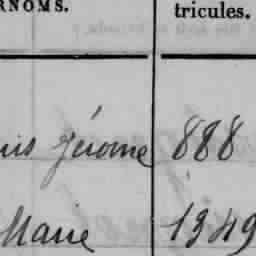 RNOMS. tricules.
uis Jérome 888
Marie 1349